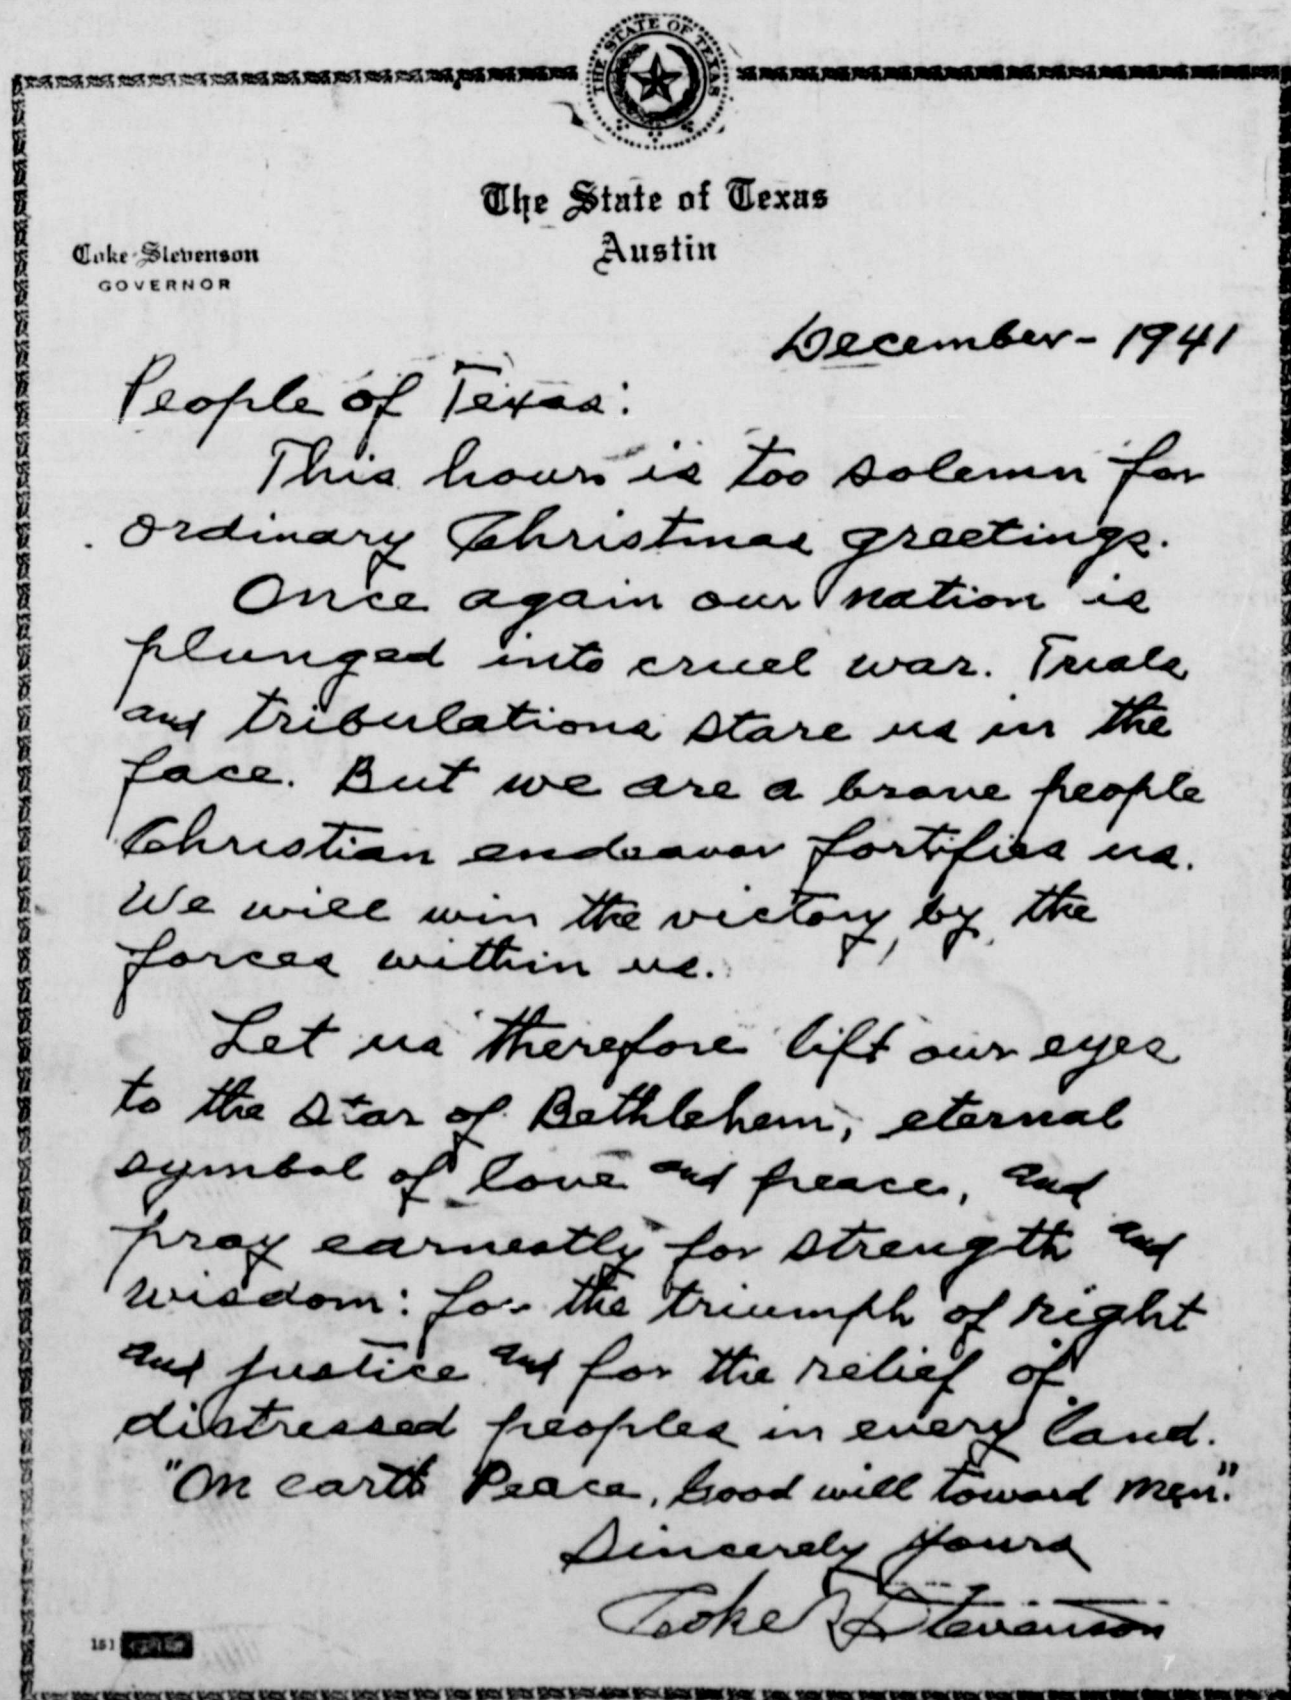 THE STATE OF TEXAS
The State of Texas
Austin
Coke Stevenson
GOVERNOR
December - 1941
People of Texas:
This hour is too solemn for
ordinary Christmas greetings.
Once again our nation is
plunged into cruel war. Trials
and tribulations stare us in the
face. But we are a brave people
Christian endeavor fortifies us.
We will win the victory, by, the
forces within us.
Let us therefore lift our eyes
to the star of Bethlehem, eternal
symbol of love and peace, and
pray earnestly for strength and
wisdom: for the triumph of right
and justice and for the relief of
distressed peoples in every land.
"On earth Peace, Good will toward men."
Sincerely yours
Coke R Stevenson